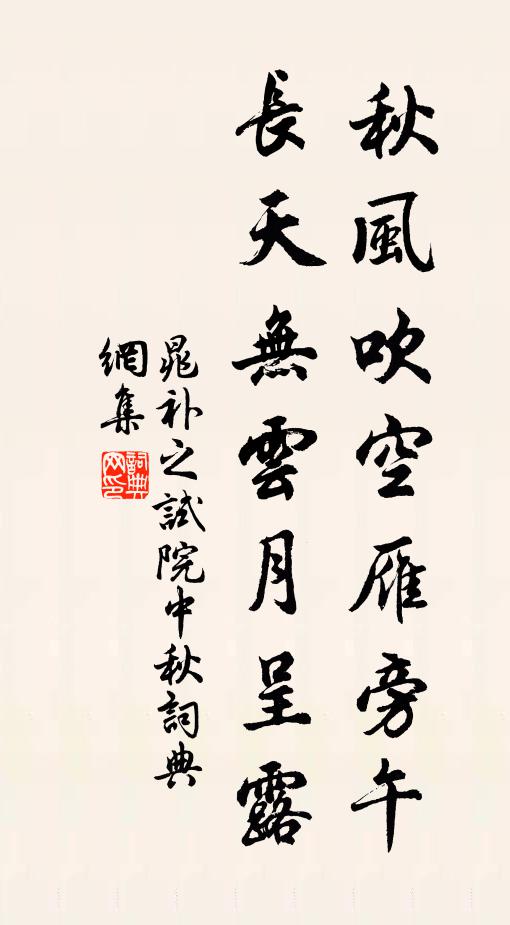 秋風吹空雁旁午
長天無雲月呈露
晁补之試院中秋詞典
網集
詞典網印